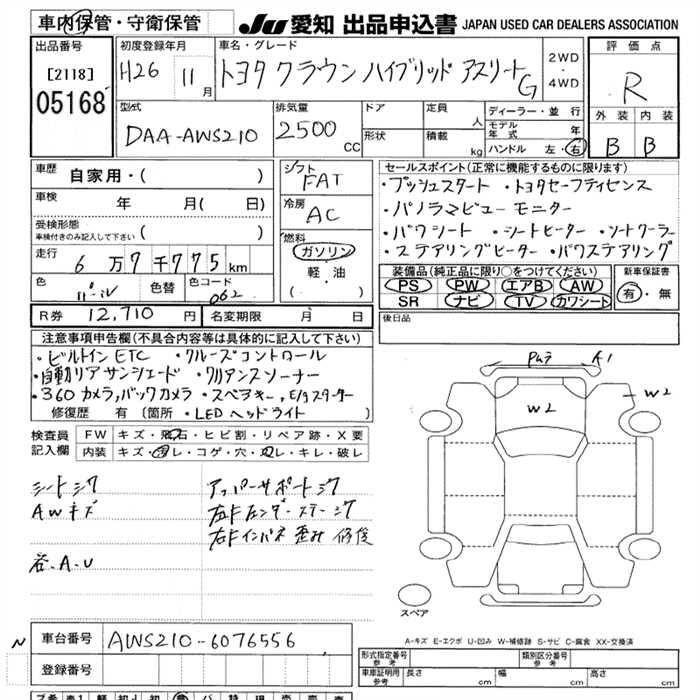 車内保管・守衛保管
JU 愛知 出品申込書 JAPAN USED CAR DEALERS ASSOCIATION
出品番号
[2118]
05168
初度登録年月
H26 11月
車名・グレード
トヨタ クラウン ハイブリッド アスリートG
2WD・4WD
評価点
R
外装 内装
B B
型式
DAA-AWS210
排気量
2500 CC
ドア
形状
定員 人
積載 kg
ディーラー・並行
モデル年式 年
ハンドル 左・右
車歴
自家用・( )
車検 年 月( 日)
受検形態
車検付きのみ記入して下さい ( )
走行 6万7千775km
色 パール 色替 色コード 062
シフト
FAT
冷房
AC
燃料
ガソリン
軽・油
( )
セールスポイント(正常に機能するものに限ります)
・プッシュスタート ・トヨタセーフティセンス
・パノラマビューモニター
・パワシート ・シートヒーター ・シートクーラー
・ステアリングヒーター ・パワステアリング
装備品(純正品に限り○をつけてください)
PS PW エアB AW
SR ナビ TV カワシート
新車保証書
有・無
R券 12,710円 名変期限 月 日
後日品
注意事項申告欄(不具合内容等は具体的に記入して下さい)
・ビルトインETC ・クルーズコントロール
・自動リアサンシェード ・クリアンスソーナー
・360カメラ,バックカメラ ・スペアキー,E/gスターター
修復歴 有 (箇所 ・LEDヘッドライト )
検査員記入欄
FW キズ・飛石・ヒビ割・リペア跡・X要
内装 キズ・汚レ・コゲ・穴・スレ・キレ・破レ
シートシワ
AWキズ
アッパーサポートシワ
右Fインパネ歪み 修復
各.A.U
A1
W2
W2
スペア
A-キズ E-エクボ U-凹み W-補修跡 S-サビ C-腐食 XX-交換済
N 車台番号 AWS210-6076556
登録番号
形式指定番号 参考
類別区分番号 参考
車庫証明用 参考
長さ cm 幅 cm 高さ cm